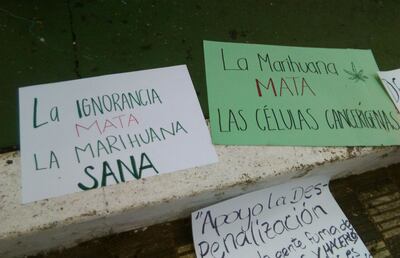 La IGNORANCIA
MATA
LA MARIHUANA
SANA
La Marihuana
MATA
LAS CÉLULAS CANCERÍGENAS
"Apoyo la DES-
Penalización